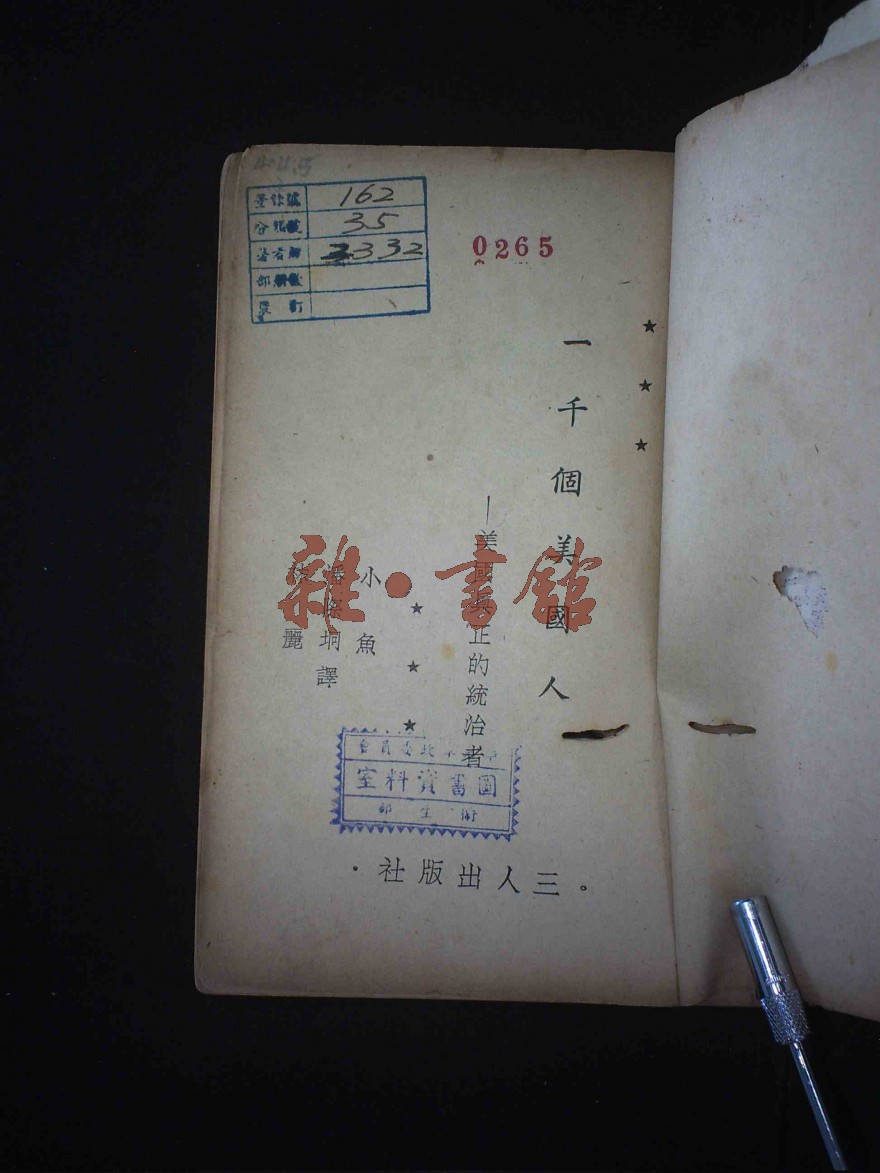 404.5
登錄號 162
分類號 35
著者號 3332
部冊數
裝訂
0265
★★★
一千個美國人
—美國真正的統治者
★★★
小魚
潘際坰譯
麗
圖書資料室
衛生部
三人出版社
雜·書館